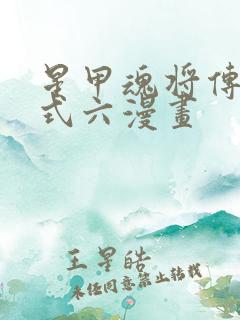 星甲魂将傳
式六漫畫
王星皓
未经同意禁止转载